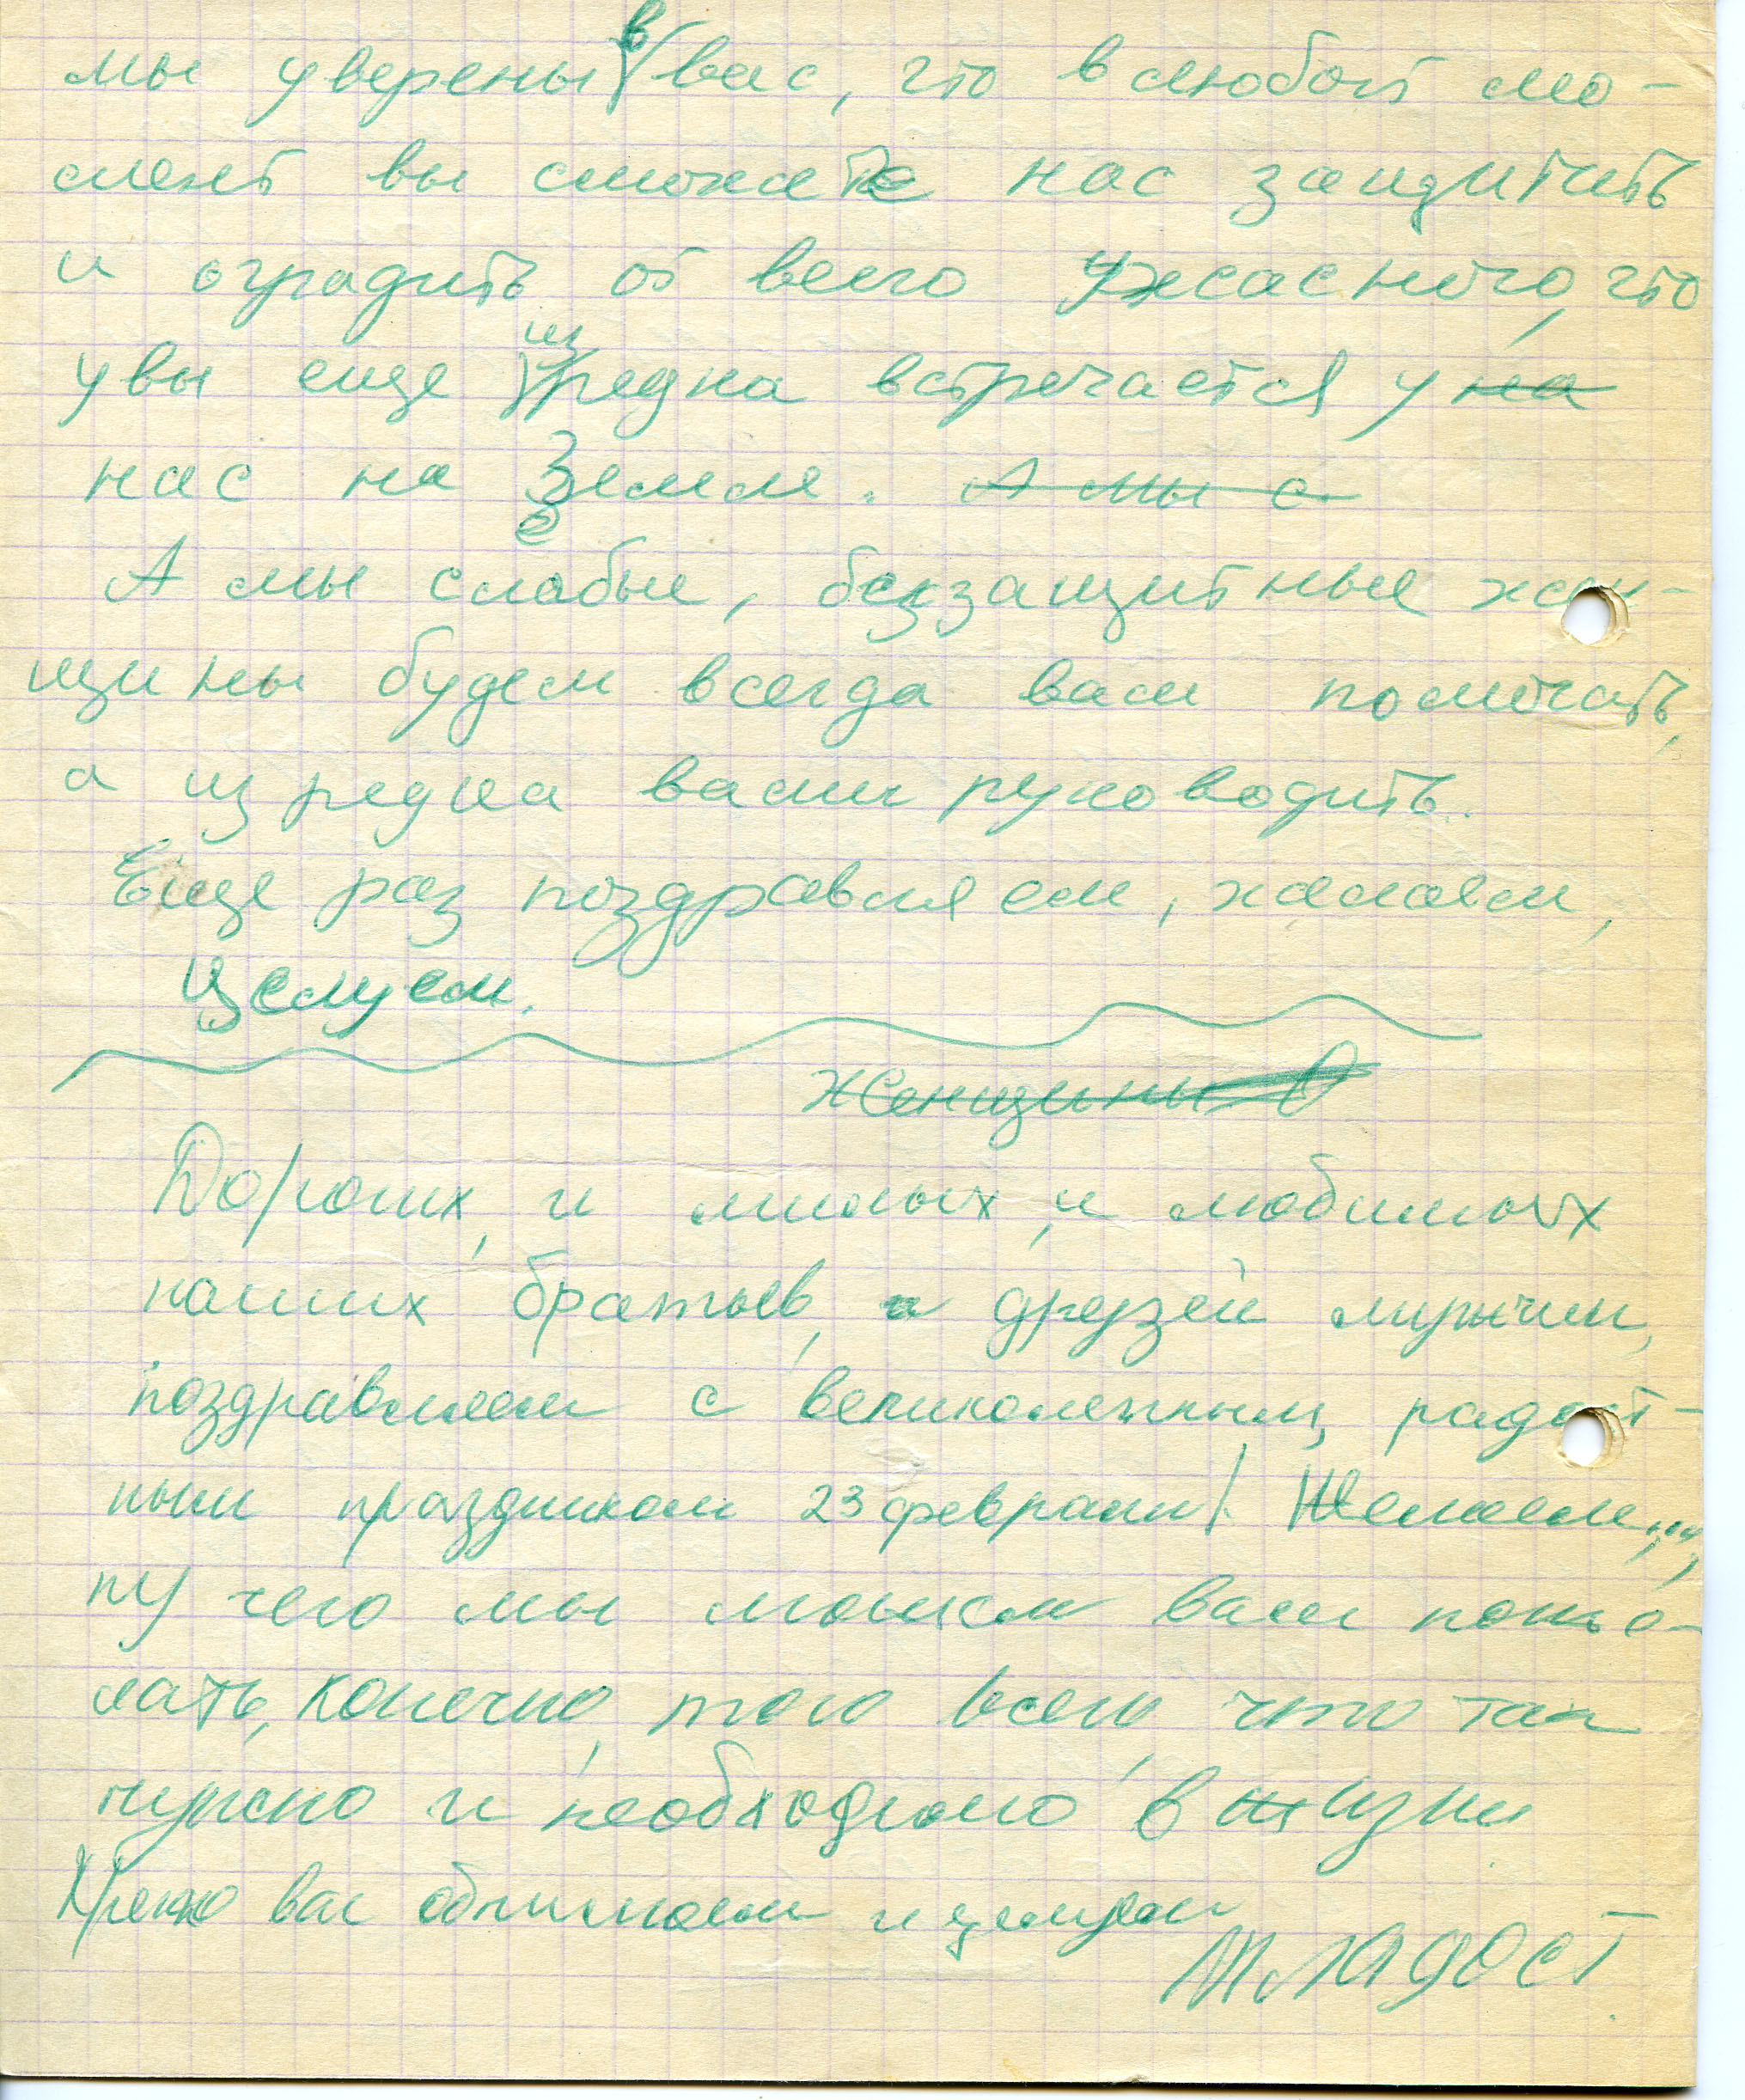 мы уверены в вас, что в любой мо-
мент вы сможете нас защитить
и оградить от всего ужасного, что
увы еще изредка встречается у на
нас на Земле. А мы с
А мы слабые, беззащитные жен-
щины будем всегда вам помогать,
а изредка вами руководить.
Еще раз поздравляем, желаем,
целуем.
Женщины
Дорогих, и милых, и любимых
наших братьев, и друзей мужчин,
поздравляем с великолепным, радост-
ным праздником 23 февраля! Желаем...,
ну чего мы можем вам поже-
лать, конечно, того всего, что так
нужно и необходимо в жизни
Крепко вас обнимаем и целуем
Младост